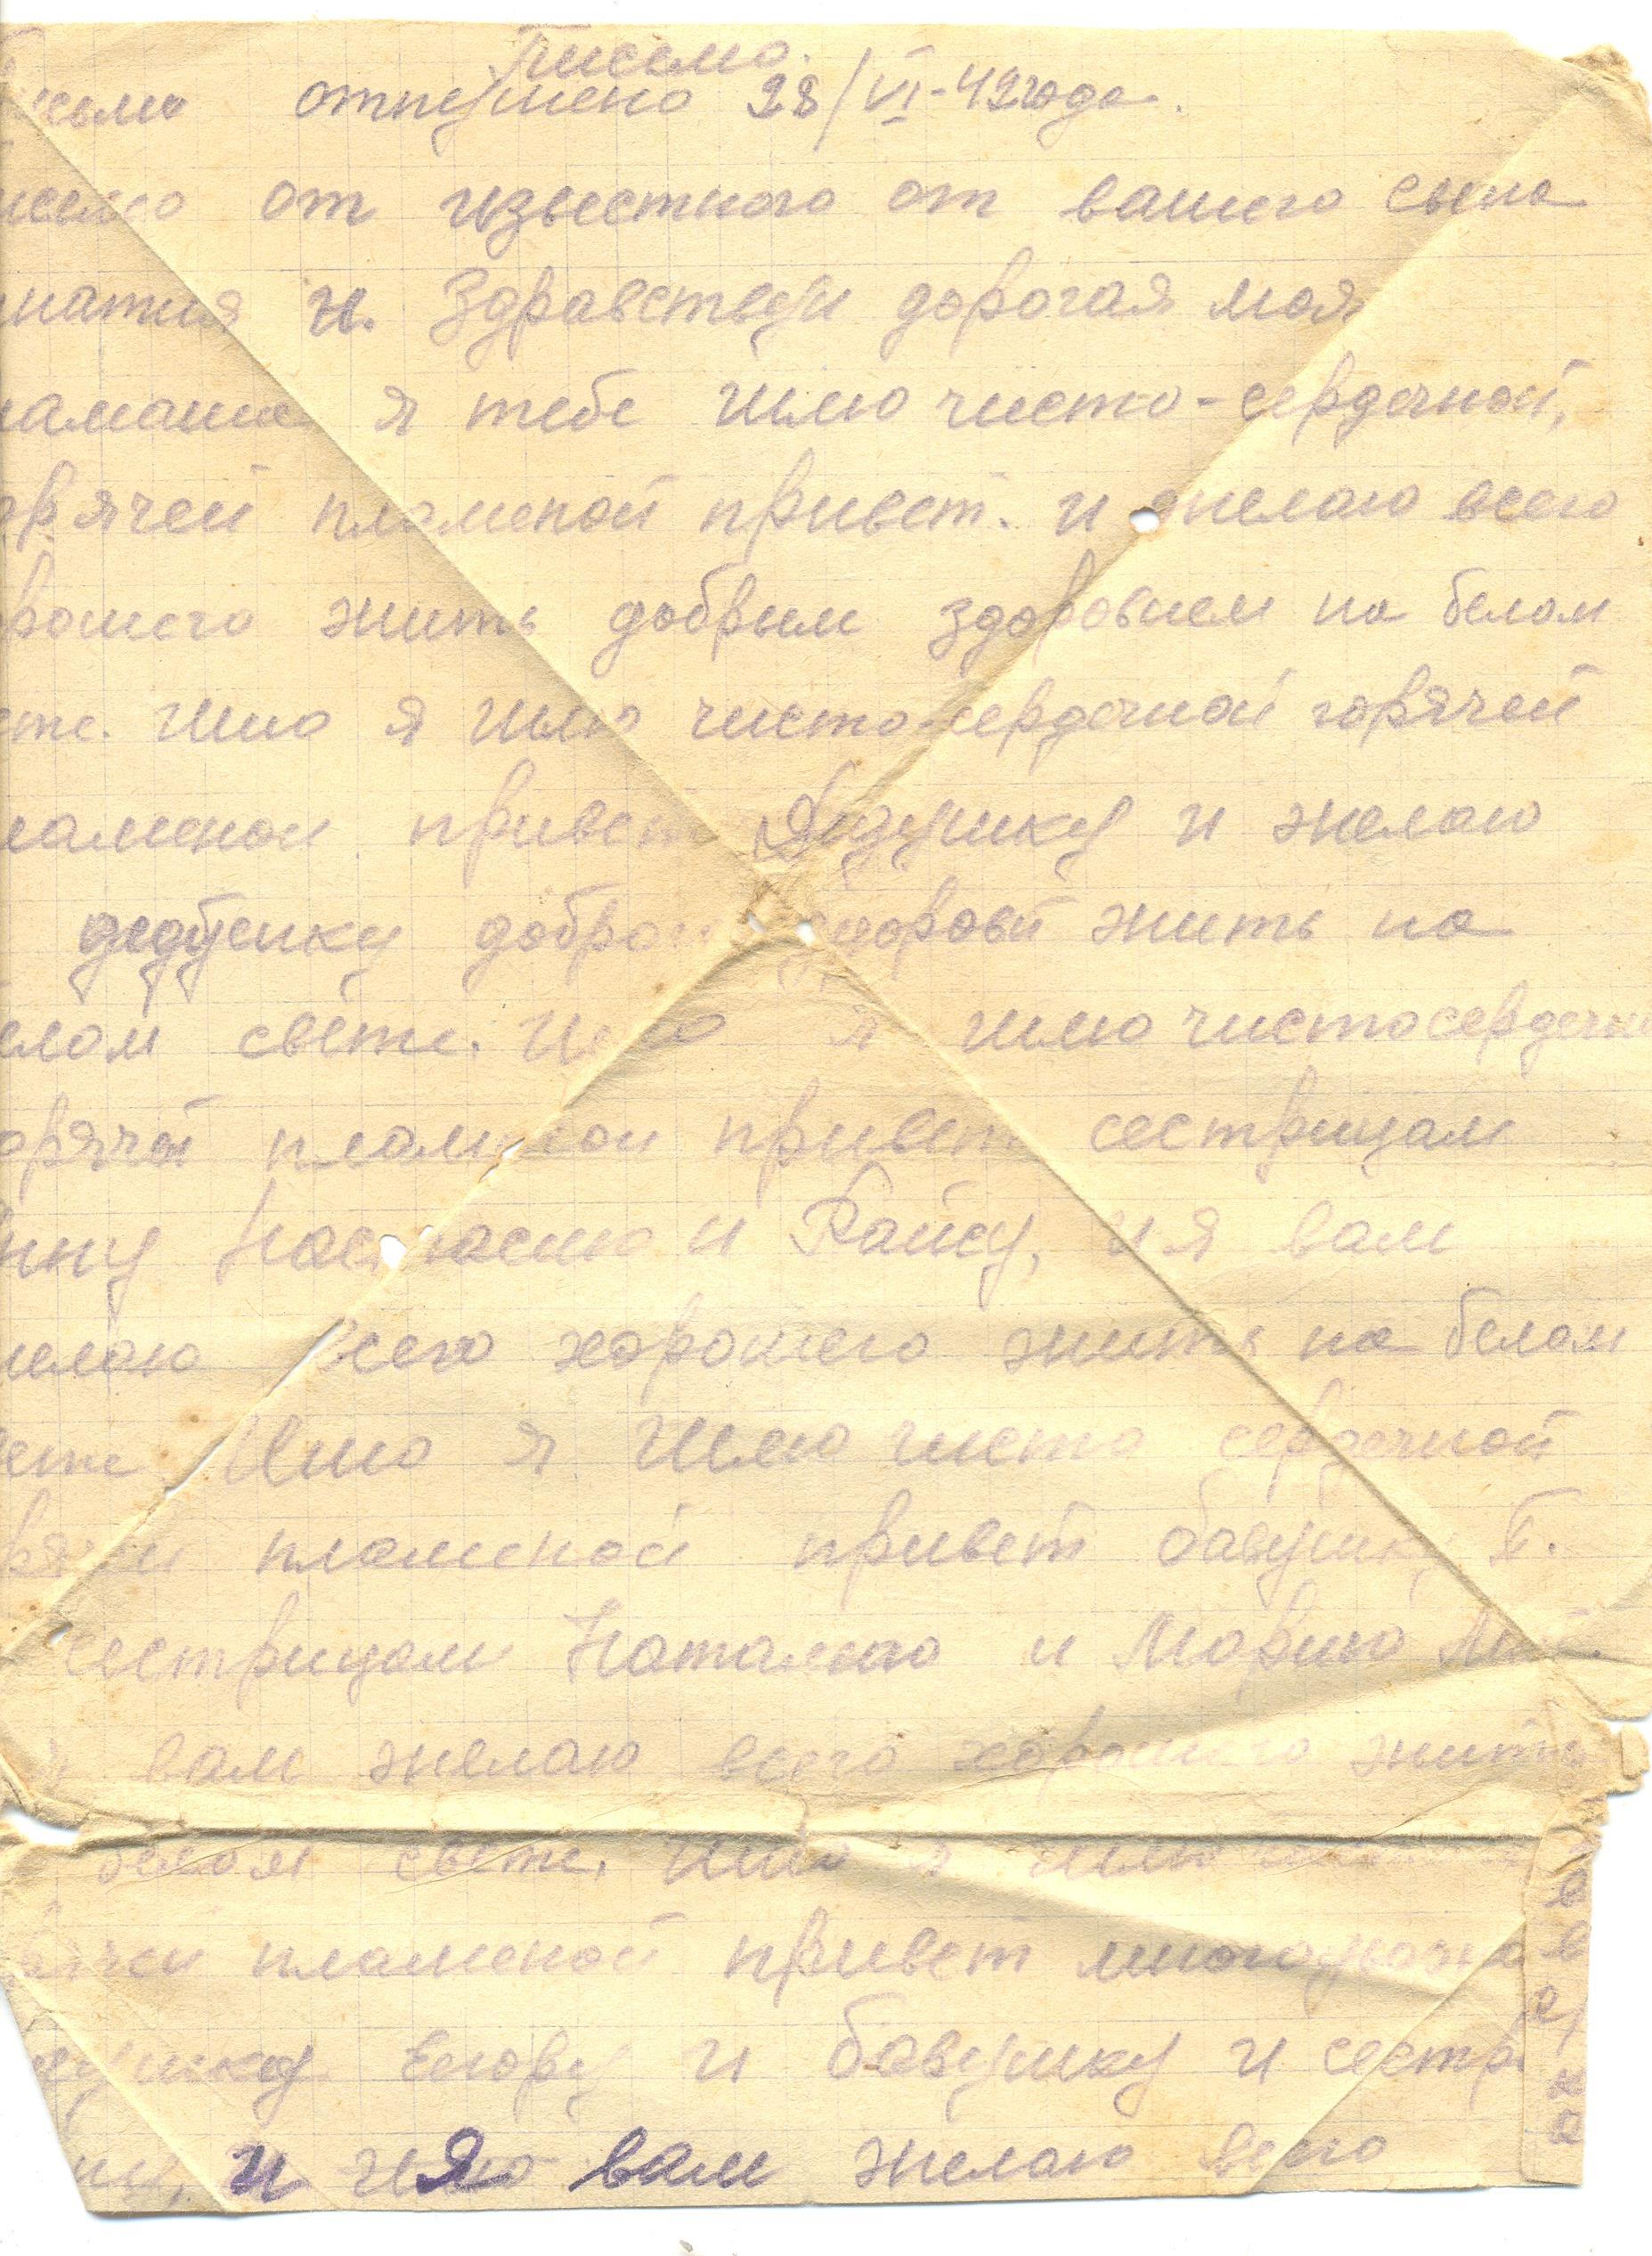 Письмо.
отпущено 28/VI-42 года.
от известного от вашего сына
и. Здравствуй дорогая моя
мамаша я тебе шлю чисто-сердечной,
пламеной привет. и желаю всего
жить добрым здоровием на белом
Ишо я шлю чисто-сердечной горячей
привет Дедушку и желаю
дедушку доброи здоровй жить на
свете. Ишо я шлю чистосердечн
пламеной привет сестрицам
Настасию и Раису, и я вам
желаю всего хорошего жить на белом
Ишо я шлю чисто сердечной
пламеной привет бавушку П.
сестрицам Наталью и Марию М
и вам желаю всего хорошего жить
белом свете, ишо я шлю
пламеной привет многоуважа
Егору и бавушку и сестр
и я вам желаю всего